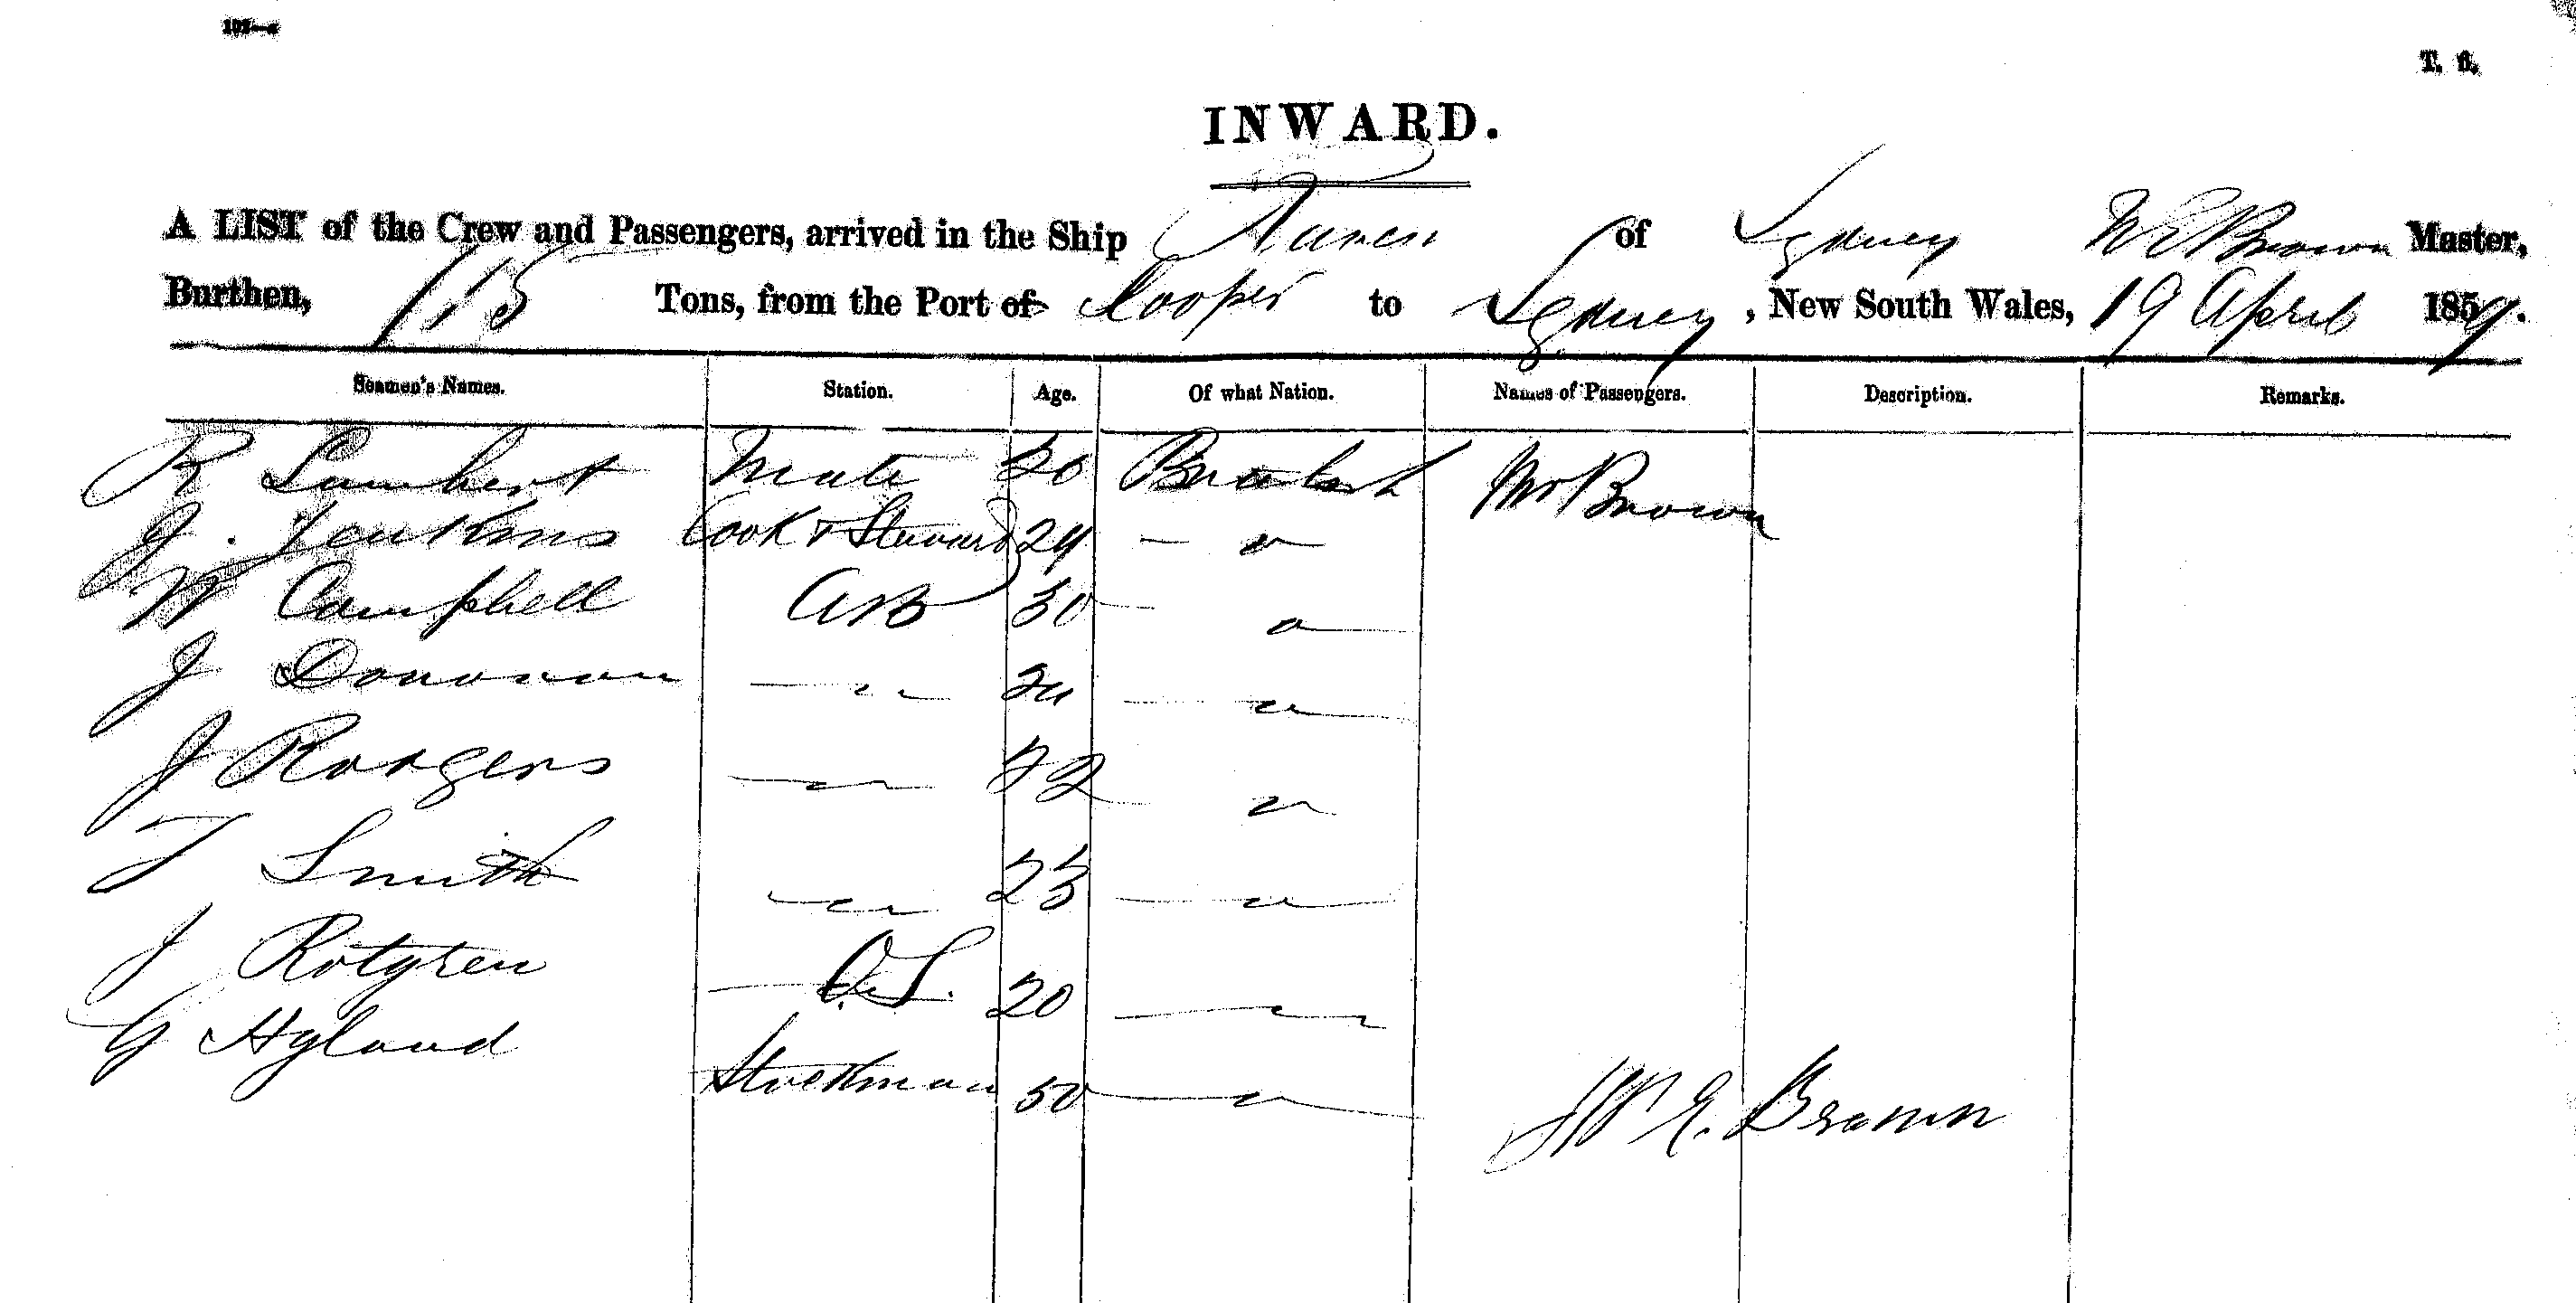 INWARD.
A LIST of the Crew and Passengers, arrived in the Ship of Sydney W E Brown Master,
Burthen, 115 Tons, from the Port of to Sydney, New South Wales, 19 April 1859.
Seamen's Names. Station. Age. Of what Nation. Names of Passengers. Description. Remarks.
R Lambert Mate British Mr Brown
J. Jenkins Cook & Steward 24 - "
W Campbell AB 30 - "
J Donovan - " - "
J Rodgers - " 22 - "
T Smith - " 23 - "
J Rotgren O.S. 20 - "
G Hyland Stockman 50 - "
W E. Brown